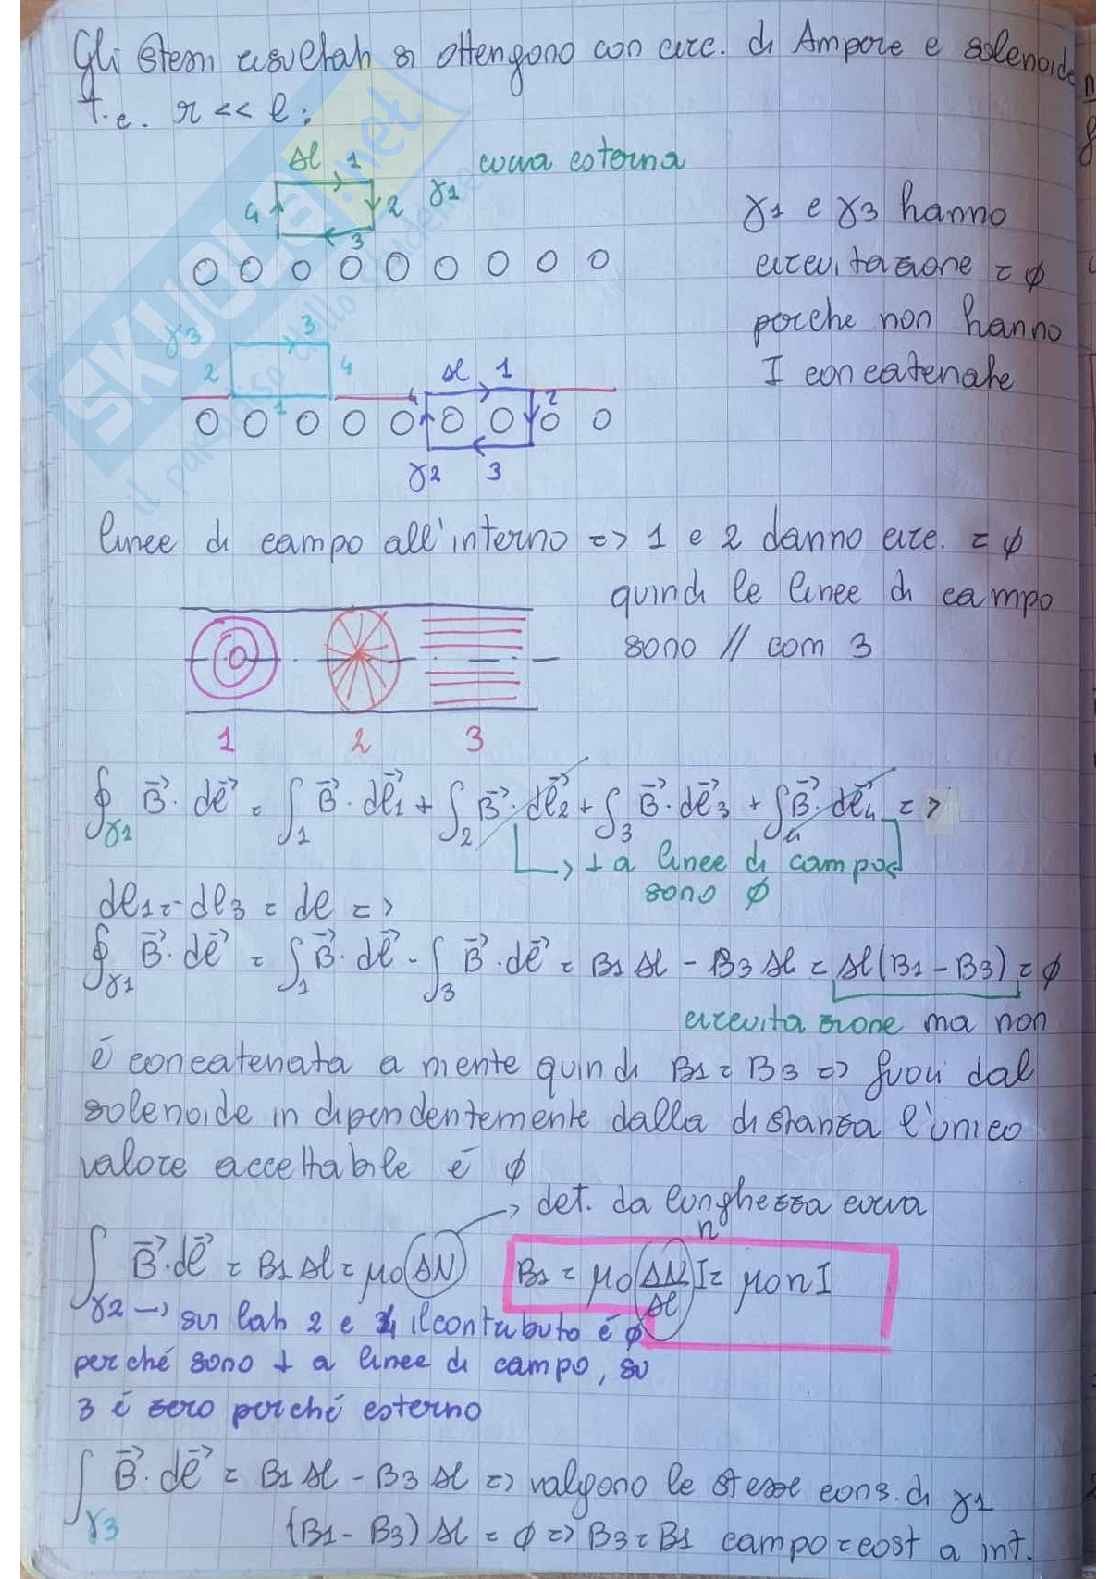 Gli stessi risultati si ottengono con circ. di Ampere e solenoide
t.c. r << l :
Δl 1 curva esterna
4 2 γ1
3
γ1 e γ3 hanno
circuitazione = ϕ
perche non hanno
I concatenate
γ3 3
2 4 Δl 1
1 4 2
γ2 3
linee di campo all'interno => 1 e 2 danno circ. = ϕ
quindi le linee di campo
sono // com 3
1 2 3
∮γ2 B⃗ · dl⃗ = ∫1 B⃗ · dl⃗1 + ∫2 B⃗ · dl⃗2 + ∫3 B⃗ · dl⃗3 + ∫4 B⃗ · dl⃗4 =>
↳ ⊥ a linee di campo
sono ϕ
dl1 = -dl3 = dl =>
∮γ1 B⃗ · dl⃗ = ∫1 B⃗ · dl⃗ - ∫3 B⃗ · dl⃗ = B1 Δl - B3 Δl = Δl (B1 - B3) = ϕ
circuitazione ma non
é concatenata a mente quindi B1 = B3 => fuori dal
solenoide indipendentemente dalla distanza l'unico
valore accettabile é ϕ
→ det. da lunghezza curva
n
∫γ2 B⃗ · dl⃗ = B1 Δl = μ0 ΔN B1 = μ0 ΔN/Δl I = μ0 n I
γ2 → sui lati 2 e 4 il contributo é ϕ
perché sono ⊥ a linee di campo, su
3 é zero perché esterno
∫γ3 B⃗ · dl⃗ = B1 Δl - B3 Δl => valgono le stesse cons. di γ1
(B1 - B3) Δl = ϕ => B3 = B1 campo = cost a int.
SKUOLA.net